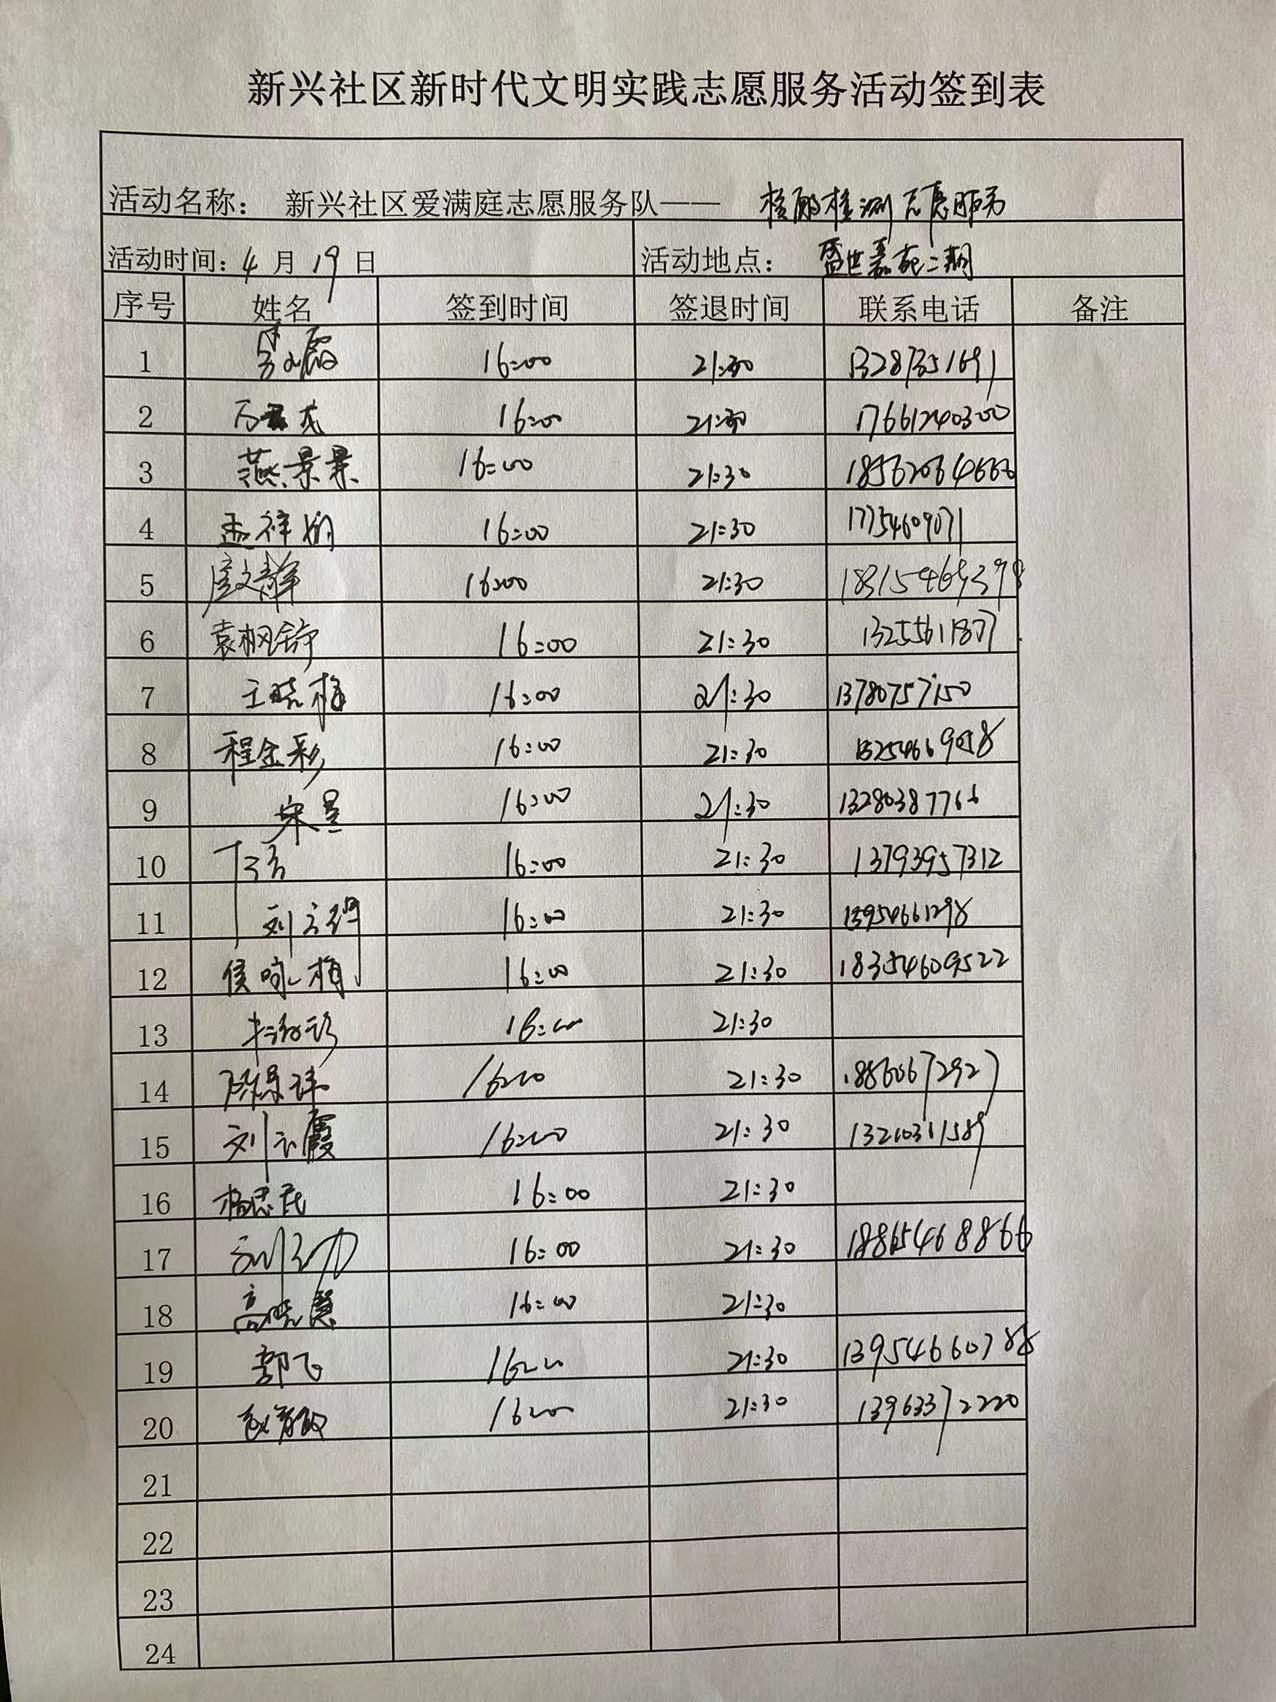 新兴社区新时代文明实践志愿服务活动签到表
活动名称： 新兴社区爱满庭志愿服务队—— 核酸检测志愿服务
活动时间：4 月 19 日 活动地点： 盛世嘉苑二期
序号 姓名 签到时间 签退时间 联系电话 备注
1 16:00 21:30 13287351691
2 16:00 21:30 17661240300
3 燕景景 16:00 21:30 18562064666
4 孟祥娟 16:00 21:30 17754609071
5 文静 16:00 21:30 18315469398
6 袁枫舒 16:00 21:30 13255611877
7 王晓梅 16:00 21:30 13780757150
8 程金彩 16:00 21:30 13254669058
9 宋昱 16:00 21:30 13280387766
10 16:00 21:30 13793957312
11 刘 16:00 21:30 13954661298
12 侯咏梅 16:00 21:30 18354609522
13 16:00 21:30
14 16:00 21:30 18860672927
15 刘云霞 16:00 21:30 13210361589
16 杨忠民 16:00 21:30
17 16:00 21:30 18865468866
18 高晓慧 16:00 21:30
19 郭飞 16:00 21:30 13954660788
20 赵 16:00 21:30 13963372220
21
22
23
24